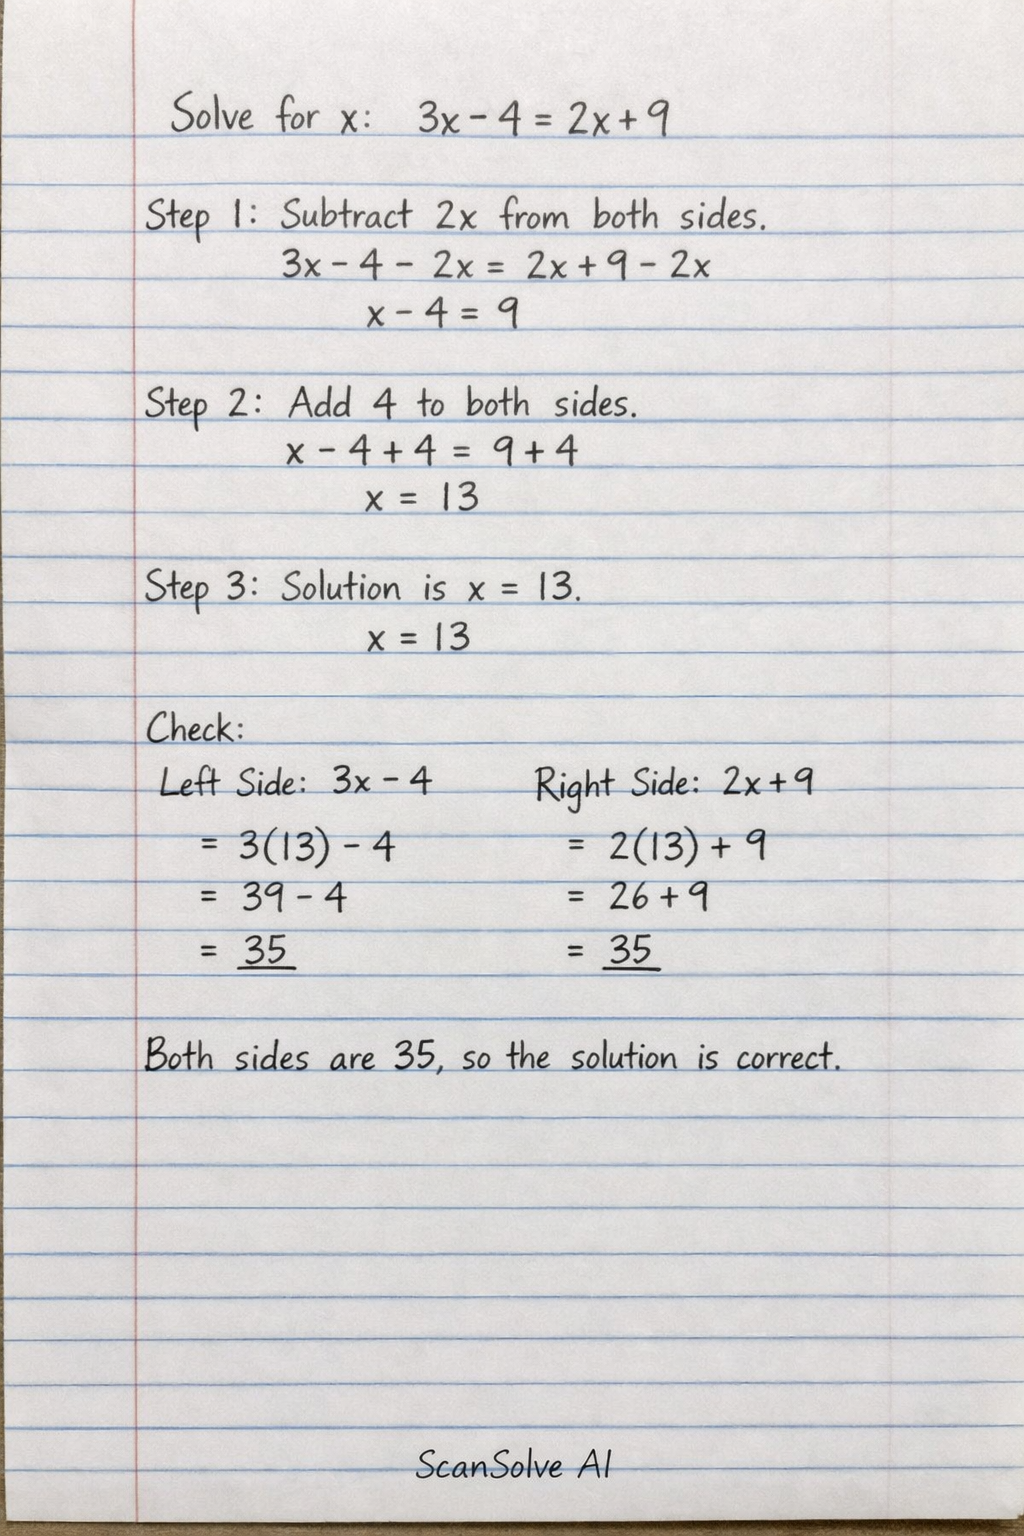 Solve for x: 3x - 4 = 2x + 9
Step 1: Subtract 2x from both sides.
3x - 4 - 2x = 2x + 9 - 2x
x - 4 = 9
Step 2: Add 4 to both sides.
x - 4 + 4 = 9 + 4
x = 13
Step 3: Solution is x = 13.
x = 13
Check:
Left Side: 3x - 4 Right Side: 2x + 9
= 3(13) - 4 = 2(13) + 9
= 39 - 4 = 26 + 9
= 35 = 35
Both sides are 35, so the solution is correct.
ScanSolve AI